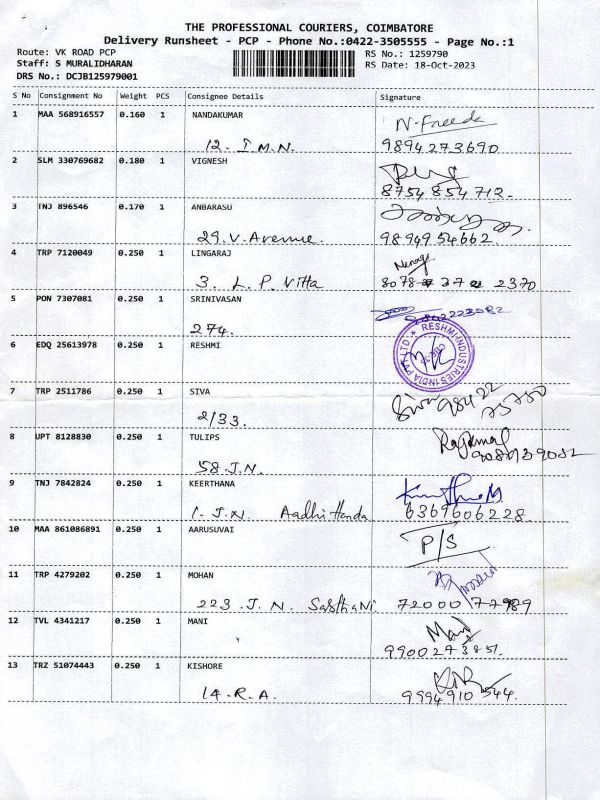 THE PROFESSIONAL COURIERS, COIMBATORE
Delivery Runsheet - PCP - Phone No.:0422-3505555 - Page No.:1
Route: VK ROAD PCP RS No.: 1259790
Staff: S MURALIDHARAN RS Date: 18-Oct-2023
DRS No.: DCJB125979001
S No Consignment No Weight PCS Consignee Details Signature
1 MAA 568916557 0.160 1 NANDAKUMAR N-Freeda
12. I.M.N. 9894273690
2 SLM 330769682 0.180 1 VIGNESH
8754 854 712-
3 TNJ 896546 0.170 1 ANBARASU
29. V. Avenue. 9894954662
4 TRP 7120049 0.250 1 LINGARAJ
3. L. P. Vitta 8078 37 2370
5 PON 7307081 0.250 1 SRINIVASAN
274.
6 EDQ 25613978 0.250 1 RESHMI RESHMI INDUSTRIES INDIA PVT LTD
7 TRP 2511786 0.250 1 SIVA Siva 98422
2/33. 75750
8 UPT 8128830 0.250 1 TULIPS
58. J.N.
9 TNJ 7842824 0.250 1 KEERTHANA
1. J.N. Aadhi 6369606228
10 MAA 861086891 0.250 1 AARUSUVAI P/S
11 TRP 4279202 0.250 1 MOHAN
223. J. N. 72000 77989
12 TVL 4341217 0.250 1 MANI Mani
9900273851.
13 TRZ 51074443 0.250 1 KISHORE
14. R. A. 9994910 544.